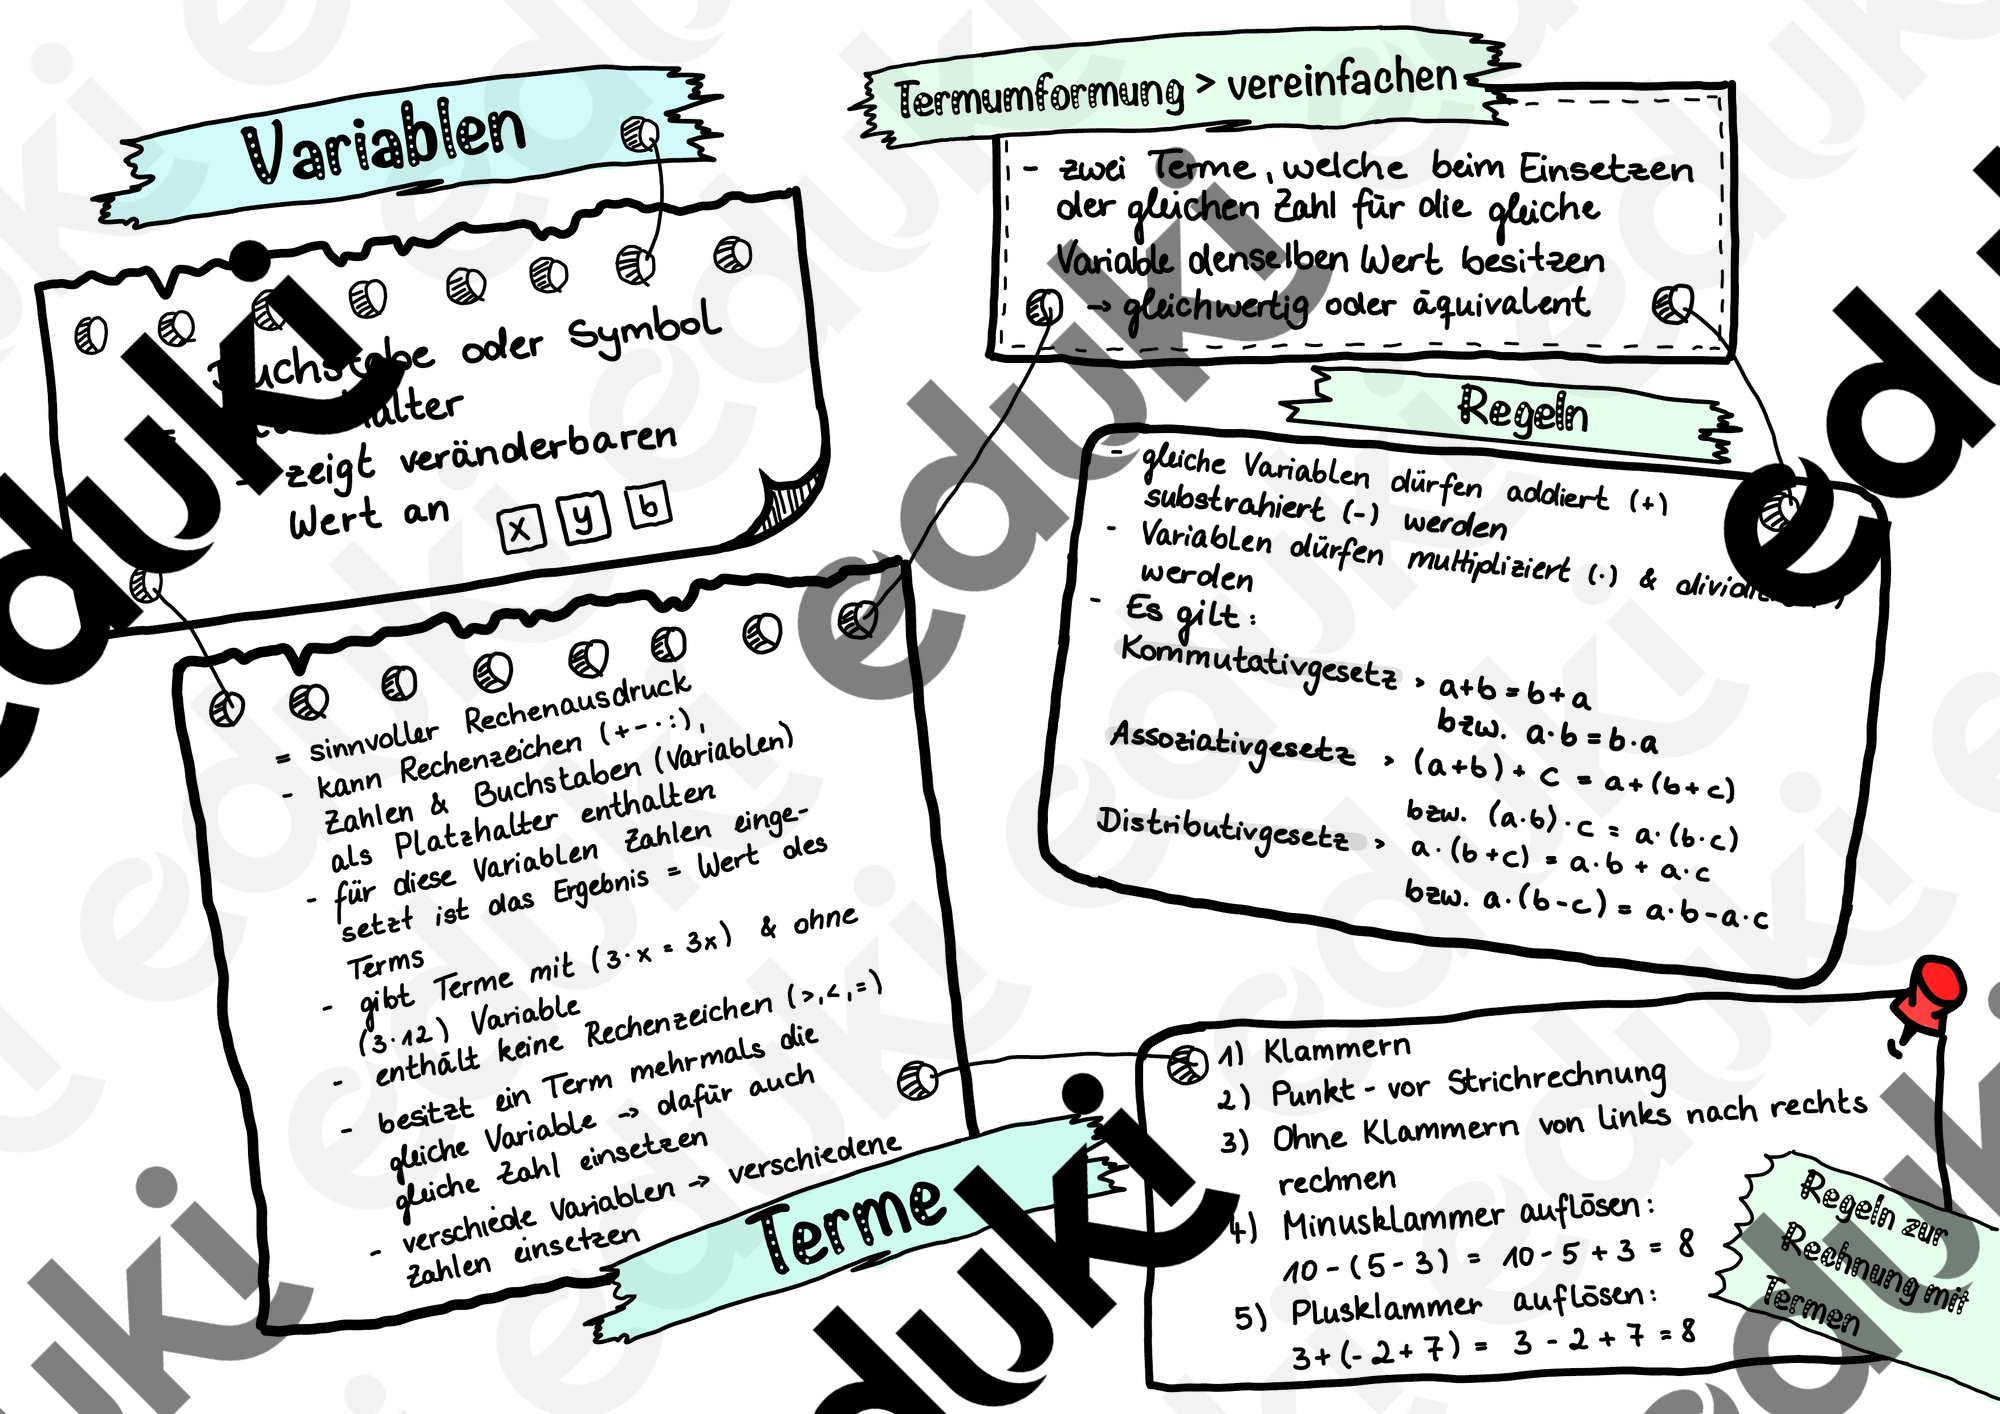 Variablen
Buchstabe oder Symbol
zeigt veränderbaren
Wert an x y b
= sinnvoller Rechenausdruck
- kann Rechenzeichen (+ - · :),
Zahlen & Buchstaben (Variablen)
als Platzhalter enthalten
- für diese Variablen Zahlen einge-
setzt ist das Ergebnis = Wert des
Terms
- gibt Terme mit (3·x = 3x) & ohne
(3·12) Variable
- enthält keine Rechenzeichen (>,<,=)
- besitzt ein Term mehrmals die
gleiche Variable → dafür auch
gleiche Zahl einsetzen
- verschiede Variablen → verschiedene
Zahlen einsetzen
Terme
Termumformung > vereinfachen
- zwei Terme, welche beim Einsetzen
der gleichen Zahl für die gleiche
Variable denselben Wert besitzen
→ gleichwertig oder äquivalent
Regeln
- gleiche Variablen dürfen addiert (+)
substrahiert (-) werden
- Variablen dürfen multipliziert (·) &
werden
- Es gilt:
Kommutativgesetz > a+b = b+a
bzw. a·b = b·a
Assoziativgesetz > (a+b) + c = a+(b+c)
bzw. (a·b)·c = a·(b·c)
Distributivgesetz > a·(b+c) = a·b + a·c
bzw. a·(b-c) = a·b-a·c
1) Klammern
2) Punkt- vor Strichrechnung
3) Ohne Klammern von links nach rechts
rechnen
4) Minusklammer auflösen:
10-(5-3) = 10-5+3 = 8
5) Plusklammer auflösen:
3+(-2+7) = 3-2+7 = 8
Regeln zur
Rechnung mit
Termen
eduki
eduki
eduki
eduki